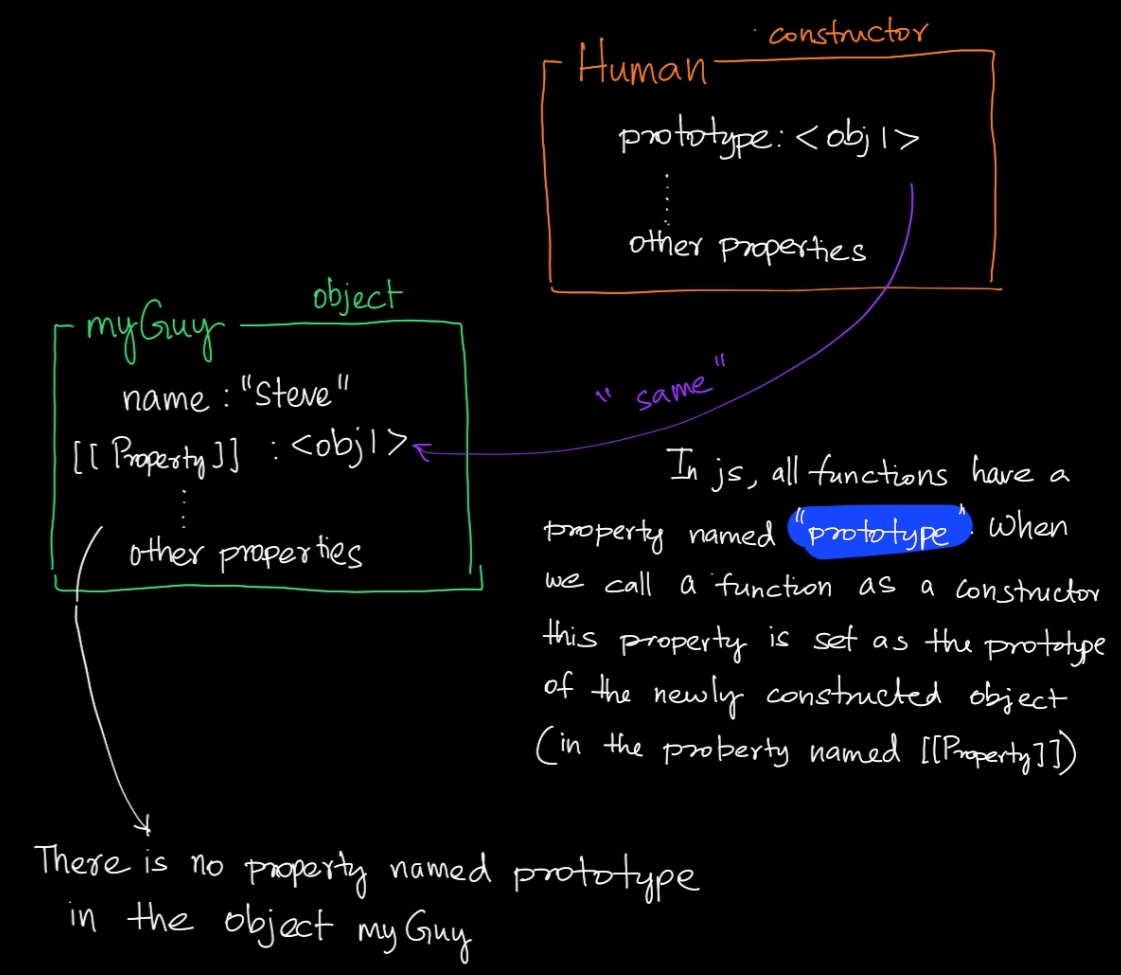 constructor
Human
prototype: <obj1>
other properties
object
myGuy
name : "Steve"
[[Property]] : <obj1>
other properties
"same"
In js, all functions have a
property named "prototype". When
we call a function as a constructor
this property is set as the prototype
of the newly constructed object
(in the proberty named [[Property]])
There is no property named prototype
in the object myGuy